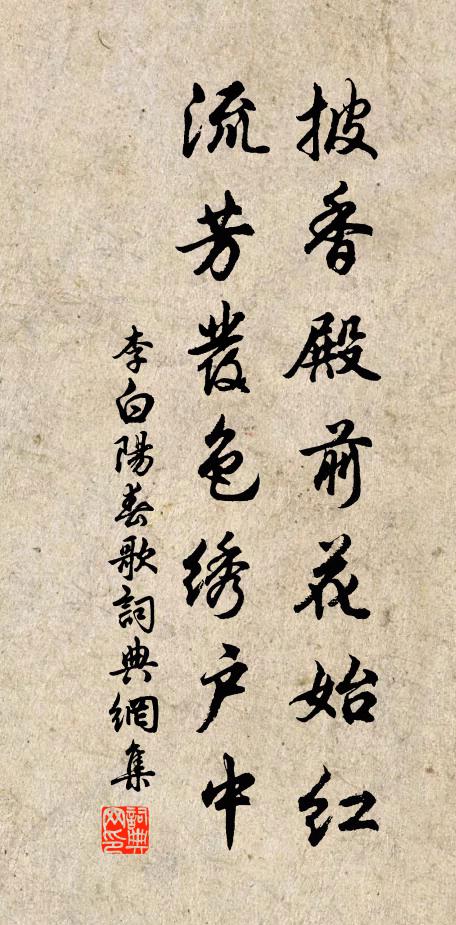 披香殿前花始红
流芳發色绣户中
李白陽春歌詞典網集
詞典网印